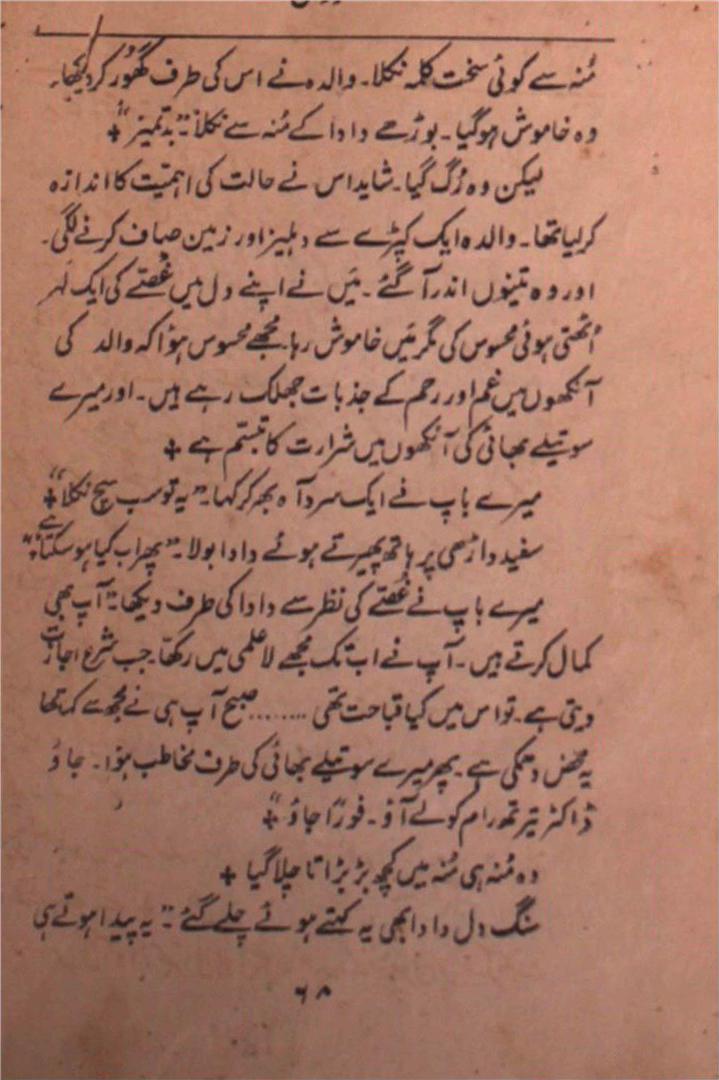 مُنہ سے کوئی سخت کلمہ نکلا۔ والدہ نے اس کی طرف گھُور کر دیکھا۔
وہ خاموش ہوگیا۔ بوڑھے دادا کے مُنہ سے نکلا۔ "بدتمیز" +
لیکن وہ رُک گیا۔ شاید اس نے حالت کی اہمیّت کا اندازہ
کر لیا تھا۔ والدہ ایک کپڑے سے دہلیز اور زمین صاف کرنے لگی۔
اور وہ تینوں اندر آگئے۔ میَں نے اپنے دل میں غُصّے کی ایک لہر
اُٹھتی ہوئی محسوس کی مگر میَں خاموش رہا۔ مجھے محسوس ہؤا کہ والد کی
آنکھوں میں غم اور رحم کے جذبات جھلک رہے ہیں۔ اور میرے
سوتیلے بھائی کی آنکھوں میں شرارت کا تبسّم ہے +
میرے باپ نے ایک سرد آہ بھر کر کہا۔ "یہ تو سب سچ نکلا" +
سفید داڑھی پر ہاتھ پھیرتے ہوئے دادا بولا۔ "پھر اب کیا ہو سکتا ہے" +
میرے باپ نے غُصّے کی نظر سے دادا کی طرف دیکھا۔ "آپ بھی
کمال کرتے ہیں۔ آپ نے اب تک مجھے لاعلمی میں رکھّا۔ جب شرع اجازت
دیتی ہے۔ تو اس میں کیا قباحت تھی ........ صبح آپ ہی نے مجھ سے کہا تھا
یہ محض دھمکی ہے۔ پھر میرے سوتیلے بھائی کی طرف مخاطب ہؤا۔ جاؤ
ڈاکٹر تیرتھ رام کو لے آؤ۔ فورًا جاؤ" +
وہ مُنہ ہی مُنہ میں کچھ بڑبڑاتا چلا گیا +
سنگ دل دادا بھی یہ کہتے ہوئے چلے گئے۔ "یہ پیدا ہوتے ہی
۶۸